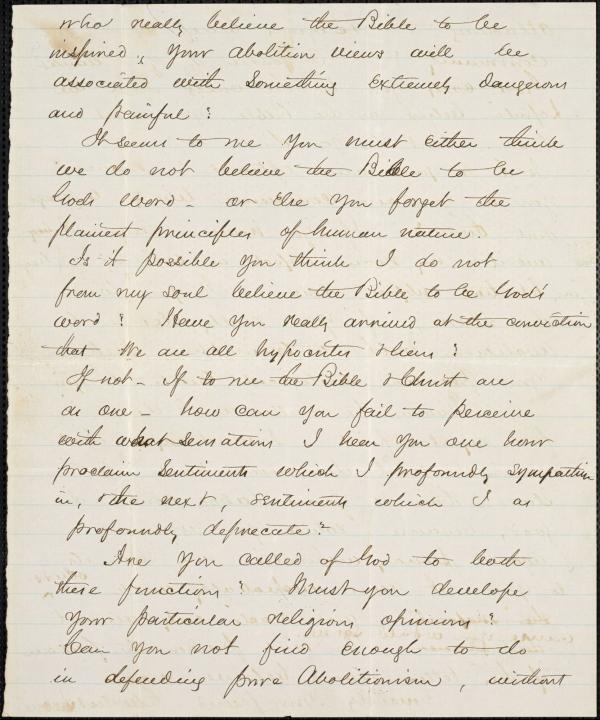 who really believe the Bible to be
inspired, your abolition views will be
associated with something extremely dangerous
and painful?
It seems to me you must either think
we do not believe the Bible to be
Gods word - or else you forget the
plainest principles of human nature.
Is it possible you think I do not
from my soul believe the Bible to be God's
word? Have you really arrived at the conviction
that we are all hypocrites & liars?
If not - If to me the Bible & Christ are
as one - how can you fail to perceive
with what sensations I hear you one hour
proclaim sentiments which I profoundly sympathize
in, & the next, sentiments which I as
profoundly deprecate?
Are you called of God to both
these functions? Must you develope
your particular religious opinions?
Can you not find enough to do
in defending pure Abolitionism, without